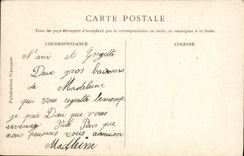 CARTE POSTALE
Tous les pays étrangers n'acceptent pas la correspondance au recto, se renseigner à la Poste.
CORRESPONDANCE
ADRESSE
Fabrication Française
et
Deux gros baisers
de Madeleine
qui vous regrette beaucoup
je prie Dieu que vous
revenez Vite Paris que
nous puissions vous
Madeleine